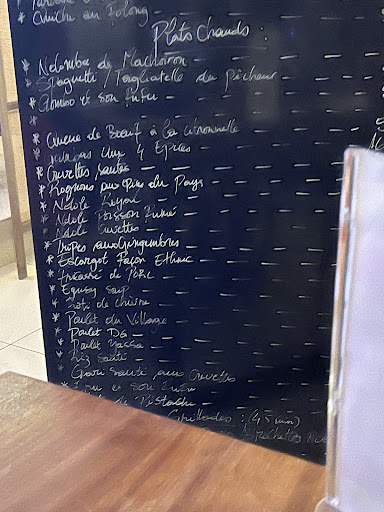 * Quiche au Folong
Plats Chauds :
* Ndomba de Machoiron
* Spaguetti / Tagliatelle du pêcheur
* Gombo et son fufu
*
* Queue de Bœuf à la citronnelle
* aux 4 Épices
* Crevettes sautés
* Rognons aux épices du Pays
* Ndolé Royal
* Ndolé Poisson Fumé
* Ndolé Crevettes
* Tripes sauce Gingembres
* Escargot Façon Ethnic
* de Porc
* Egussy Soup
* Roti de chèvre
* Poulet du Village
* Poulet DG
* Poulet Yassa
* Riz Sauté
* Gari Sauté aux Crevettes
* Eru et son
* de Pistache
Grillades : (45 min)